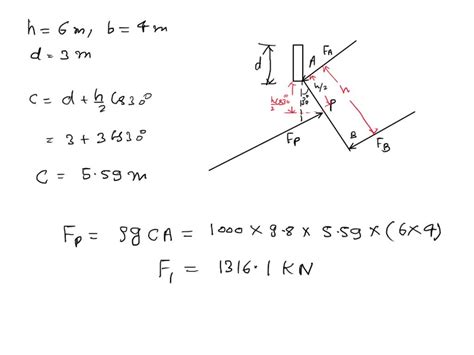 h = 6 m, b = 4 m
d = 3 m
C = d + h/2 Cos30°
= 3 + 3 Cos30°
C = 5.59 m
d
A
F_A
h/2
h
h/2 cos30°
30°
P
F_P
B
F_B
F_P = ρg CA = 1000 × 9.8 × 5.59 × (6×4)
F_1 = 1316.1 KN